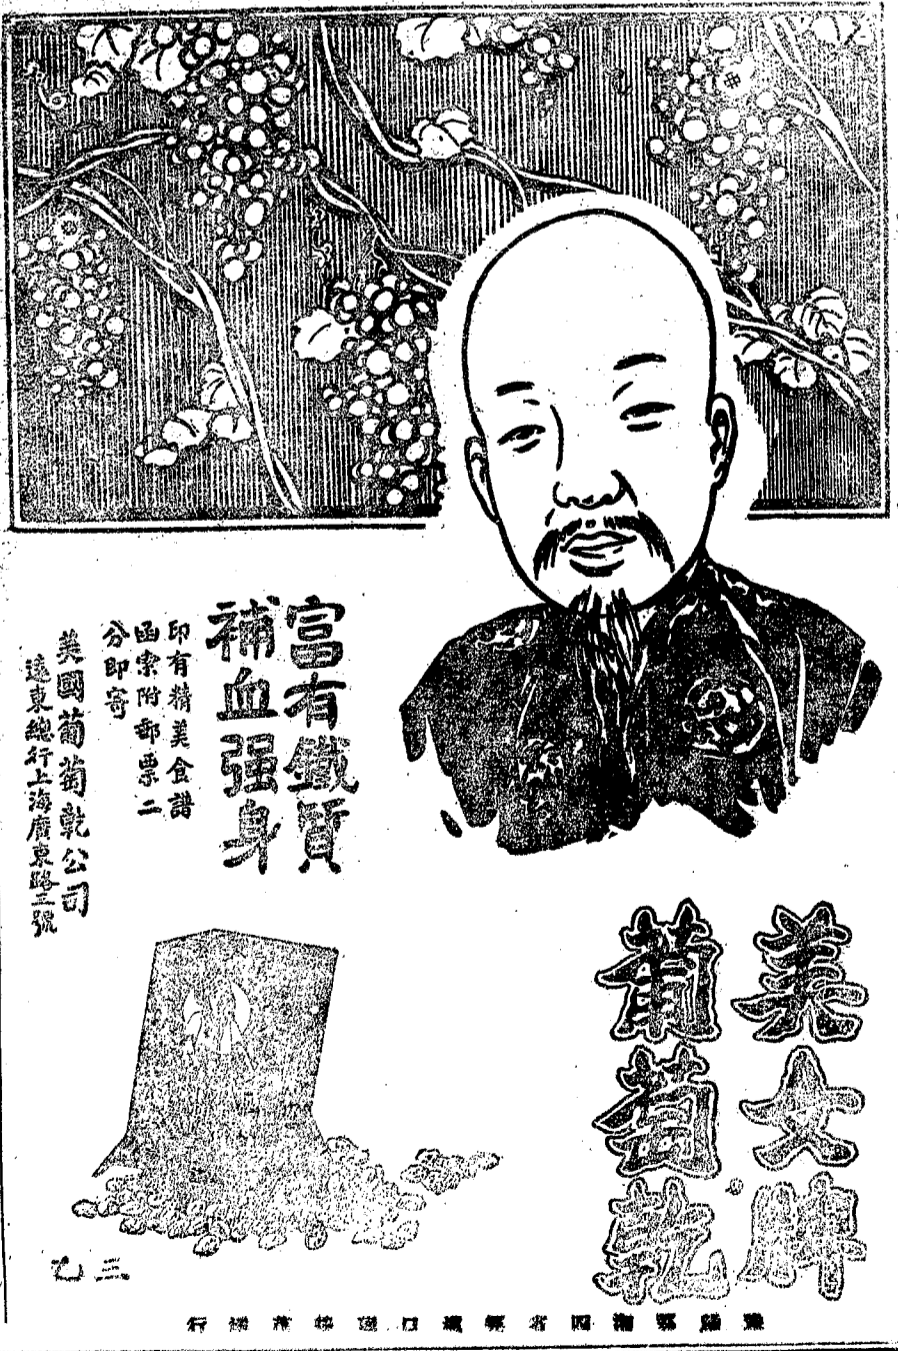 美女牌
葡萄乾
富有鐵質
補血强身
印有精美食譜
函索附郵票二
分即寄
美國葡萄乾公司
遠東總行上海廣東路三號
三乙